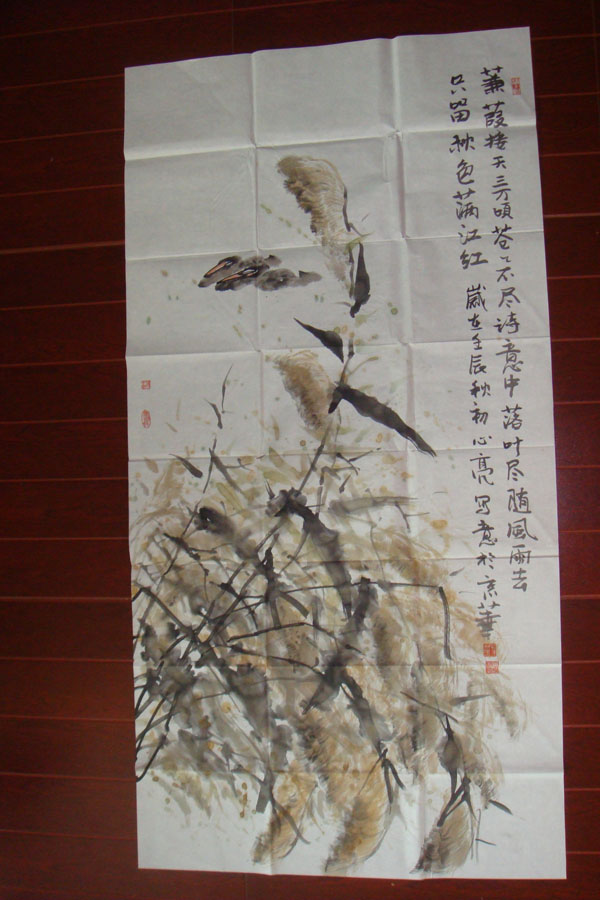 蒹葭接天三万顷苍々不尽诗意中落叶尽随風雨去
只留秋色满江红 歲在壬辰秋初心亮写意於京華